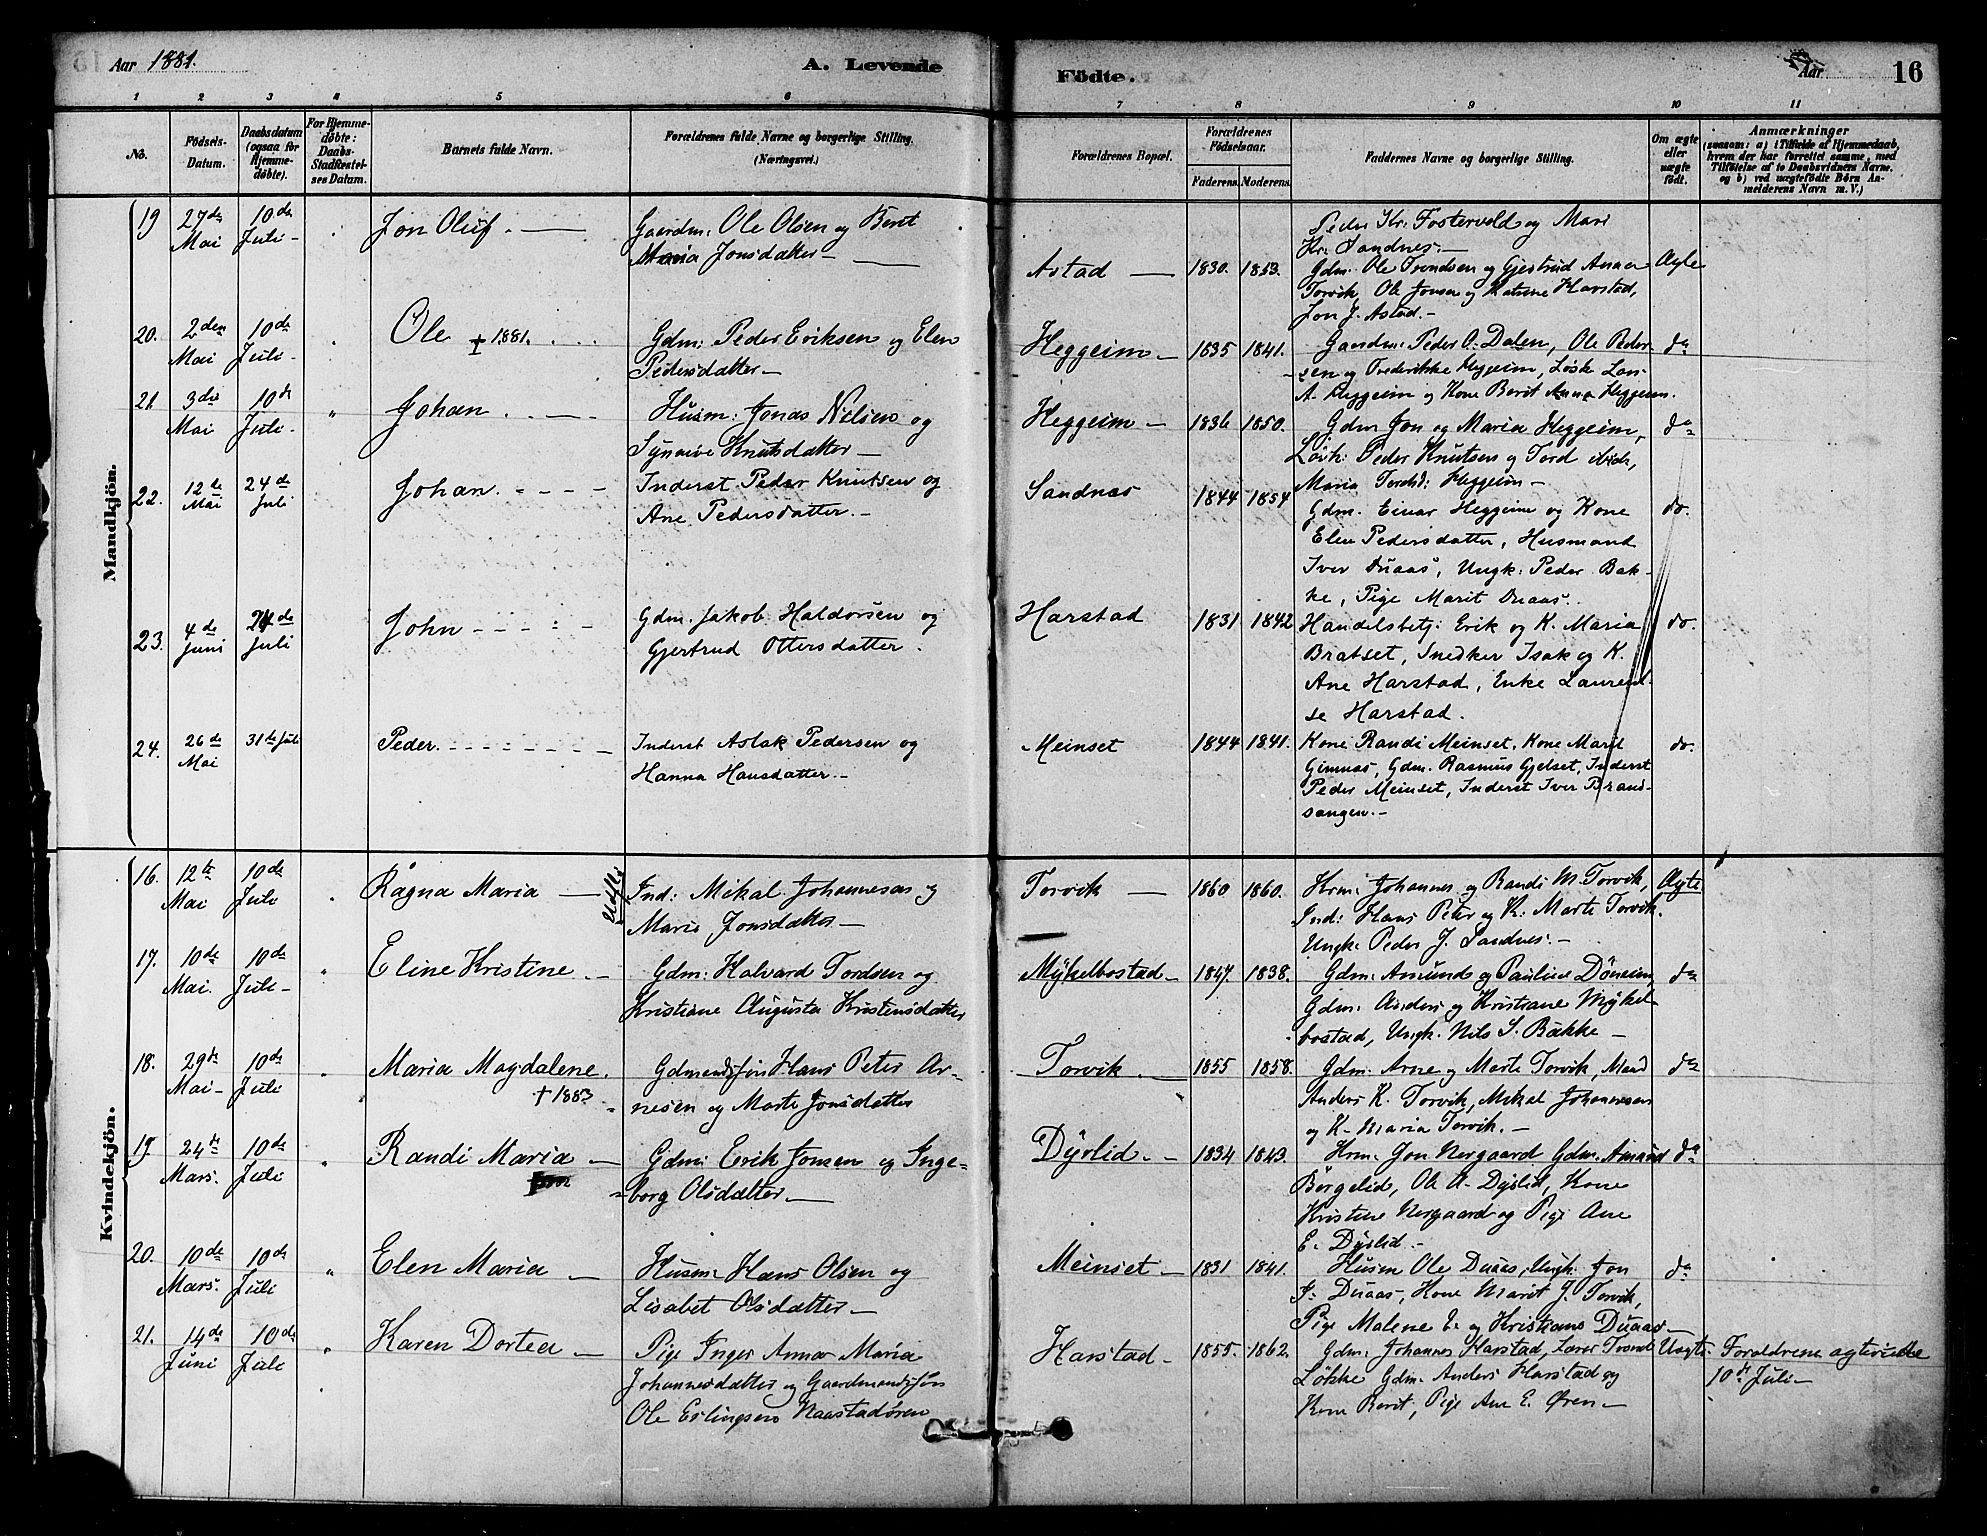 Aar 1881.
A. Levende
Födte.
Aar
16
1 2 3 4 5 6 7 8 9 10 11
No.
Födsels-Datum.
Daabsdatum (ogsaa for Hjemme-døbte).
For Hjemme-døbte: Daabs-Stadfæstelses Datum.
Barnets fulde Navn.
Forældrenes fulde Navne og borgerlige Stilling. (Næringsvei.)
Forældrenes Bopæl.
Forældrenes Födselsaar.
Faderens. Moderens.
Faddernes Navne og borgerlige Stilling.
Om ægte eller uægte født.
Anmærkninger
(saasom: a) i Tilfælde af Hjemmedaab, hvem der har forrettet samme, med Tilføielse af to Daabsvidners Navne, og b) ved uægtefødte Børn Anmelderens Navn m. V.)
Mandkjön.
19 27de Mai 10de Juli - Jon Oluf. Gaardm: Ole Olsen og Berit
Maria Jonsdatter -
Astad 1830. 1853. Ægte
Peder Kr: Fostervold og Mari
Kr: Sandnes. -
Gdm: Ole Trondsen og Gjertrud Anna
Torvik, Ole Jonsen og Katrine Harstad,
Jon J. Astad. -
20. 2den Mai 10de Juli - Ole + 1881. Gdm: Peder Eriksen og Elen
Pedersdatter -
Heggeim - 1835 1841. do
Gaardm: Peder O. Dalen, Ole Peder-
sen og Frederikke Heggeim, Løsk: Lars
A. Heggeim og Kone Berit Anna Heggeim.
21. 3die Mai 10de Juli - " Johan. Husm: Jonas Nilsen og
Synnive Knutsdatter -
Heggeim - 1836 1850. do
Gdm Jon og Maria Heggeim,
Løsk: Peder Knutsen og Tord ibid,
Maria Tordsd: Heggeim -
22. 12te Mai 24de Juli Johan. Inderst Peder Knutsen og
Ane Pedersdatter. -
Sandnes 1844 1854 do.
Gdm. Einar Heggeim og Kone
Elen Pedersdatter, Husmand
Iver Duaas, Ungk: Peder Bak-
ke, Pige Marit Duaas.
23. 4de Juni 24de Juli John Gdm. Jakob Haldorsen og
Gjertrud Ottersdatter.
Harstad 1831 1842 do.
Handelsbetj. Erik og K. Maria
Bratset, Snedker Isak og K.
Ane Harstad, Enke Laurent-
se Harstad.
24. 26de Mai 31te Juli Peder. Inderst Aslak Pedersen og
Hanna Hansdatter. -
Meinset 1844 1841. do.
Kone Randi Meinset, Kone Marit
Gimnæs, Gdm. Rasmus Gjelset, Inderst
Peder Meinset, Inderst Iver Brand-
sangen. -
Kvindekjön.
16. 12te Mai 10de Juli Ragna Maria - Ind: Mikal Johannesen og
Marie Jonsdatter -
Torvik - 1860 1860. Ægte
Krm: Johannes og Randi M. Torvik,
Ind: Hans Peter og K: Marte Torvik.
Ungk: Peder J. Sandnes. -
17. 10de Mai. 10de Juli - " Eline Kristine - Gdm: Halvard Tordsen og
Kristiane Augusta Kristensdatter
Mykelbostad - 1847. 1838. do
Gdm: Amund og Pauline Døneim,
Gdm: Anders og Kristiane Mykel-
bostad, Ungk. Nils S. Bakke -
18. 29de Mai - 10de Juli " Maria Magdalene. + 1883 Gdmandssøn Hans Peter Ar-
nesen og Marte Jonsdatter
Torvik. - 1855 1858. do
Gdm. Arne og Marte Torvik, Mand
Anders K. Torvik, Mikal Johannesen
og K. Maria Torvik. -
19. 24de Mars. 10de Juli " Randi Maria - Gdm: Erik Jonsen og Inge-
borg Olsdatter -
Dyrlid. - 1834 1843. do
Krm. Jon Nergaard Gdm. Amund
Børgelid, Ole A. Dyrlid, Kone
Kristine Nergaard og Pige Ane
E. Dyrlid. -
20. 10de Mars. 10de Juli " Elen Maria - Husm: Hans Olsen og
Lisabet Olsdatter -
Meinset - 1831 1841. do
Husm Ole Duaas, Ungk: Jon
J. Duaas, Kone Marit J. Torvik,
Pige Malene E. og Kristians Duaas -
21. 14de Juni 10de Juli " Karen Dortea - Pige Inger Anna Maria
Johannesdatter og Gaardmandssøn
Ole Eslingsen Naastadøren
Harstad - 1855. 1862. Uægte
Gdm: Johannes Harstad, Lærer Trond
Løkke Gdm. Anders Harstad og
Kone Berit, Pige Ane E. Øren -
Forældrene ægteviede
10de Juli -